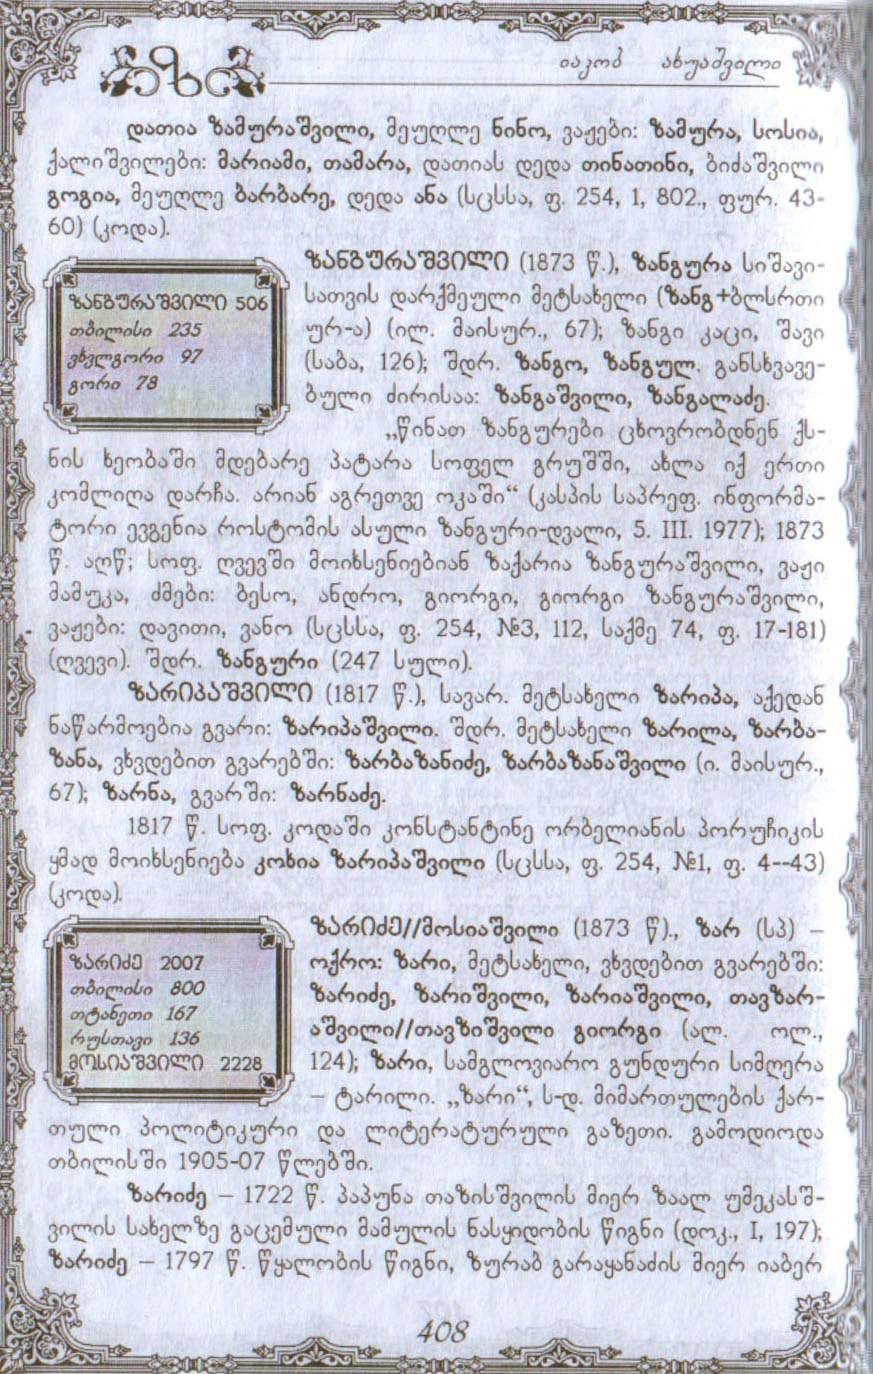 იაკობ ახუაშვილი
დათია ზამურაშვილი, მეუღლე ნინო, ვაჟები: ზამურა, სოსია,
ქალიშვილები: მარიამი, თამარა, დათიას დედა თინათინი, ბიძაშვილი
გოგია, მეუღლე ბარბარე, დედა ანა (სცსსა, ფ. 254, 1, 802., ფურ. 43-
60) (კოდა).
ზანგურაშვილი (1873 წ.), ზანგურა სიშავი-
სათვის დარქმეული მეტსახელი (ზანგ+ბლსრთი
ურ-ა) (ილ. მაისურ., 67); ზანგი კაცი, შავი
(საბა, 126); შდრ. ზანგო, ზანგულ. განსხვავე-
ბული ძირისაა: ზანგაშვილი, ზანგალაძე.
ზანგურაშვილი 506
თბილისი 235
ვხვლგორი 97
გორი 78
„წინათ ზანგურები ცხოვრობდნენ ქს-
ნის ხეობაში მდებარე პატარა სოფელ გრუშში, ახლა იქ ერთი
კომლიღა დარჩა. არიან აგრეთვე ოკაში“ (კასპის საპრეფ. ინფორმა-
ტორი ევგენია როსტომის ასული ზანგური-დვალი, 5. III. 1977); 1873
წ. აღწ; სოფ. ღვევში მოიხსენიებიან ზაქარია ზანგურაშვილი, ვაჟი
მამუკა, ძმები: ბესო, ანდრო, გიორგი, გიორგი ზანგურაშვილი,
ვაჟები: დავითი, ვანო (სცსსა, ფ. 254, №3, 112, საქმე 74, ფ. 17-181)
(ღვევი). შდრ. ზანგური (247 სული).
ზარიპაშვილი (1817 წ.), სავარ. მეტსახელი ზარიპა, აქედან
ნაწარმოებია გვარი: ზარიპაშვილი. შდრ. მეტსახელი ზარილა, ზარბა-
ზანა, ვხვდებით გვარებში: ზარბაზანიძე, ზარბაზანაშვილი (ი. მაისურ.,
67); ზარნა, გვარში: ზარნაძე.
1817 წ. სოფ. კოდაში კონსტანტინე ორბელიანის პორუჩიკის
ყმად მოიხსენიება კოხია ზარიპაშვილი (სცსსა, ფ. 254, №1, ფ. 4--43)
(კოდა).
ზარიძე//მოსიაშვილი (1873 წ)., ზარ (სპ) –
ოქრო: ზარი, მეტსახელი, ვხვდებით გვარებში:
ზარიძე, ზარიშვილი, ზარიაშვილი, თავზარ-
აშვილი//თავზიშვილი გიორგი (ალ. ოლ.,
124); ზარი, სამგლოვიარო გუნდური სიმღერა
– ტარილი. „ზარი“, ს-დ. მიმართულების ქარ-
ზარიძე 2007
თბილისი 800
თტანეთი 167
რუსთავი 136
მოსიაშვილი 2228
თული პოლიტიკური და ლიტერატურული გაზეთი. გამოდიოდა
თბილისში 1905-07 წლებში.
ზარიძე – 1722 წ. პაპუნა თაზისშვილის მიერ ზაალ უმეკასშ-
ვილის სახელზე გაცემული მამულის ნასყიდობის წიგნი (დოკ., I, 197);
ზარიძე – 1797 წ. წყალობის წიგნი, ზურაბ გარაყანაძის მიერ იაბერ
408